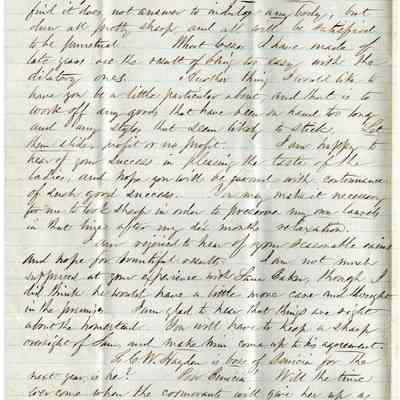 find it does not answer to indulge any body, but
dun all pretty sharp and all will be satisfied
to be punctual. What losses I have made of
late years are the result of being too easy with the
dilatory ones. Another thing I would like to
have you be a little particular about and that is to
work off any goods that have been on hand too long
and any styles that seem likely to stick. Let
them slide, profit or no profit. I am happy to
hear of your success in pleasing the taste of the
ladies, and hope you will be favored with continuance
of such good success. You may make it necessary
for me to look sharp in order to preserve my own laurels
in that line after my six months relaxation.
I am rejoiced to hear of your seasonable rains
and hope for bountiful results. I am not much
surprised at your experience with Baker, though I
did think he would have a little more care and thought
in the premises. I am glad to hear that things are right
about the homestead. You will have to keep a sharp
oversight of Sam, and make him come up to his agreement.
C. W. Hayden is boss of Benicia for the
next year, is he? Poor Benicia! Will the time
ever come when the cormorants will give her up as